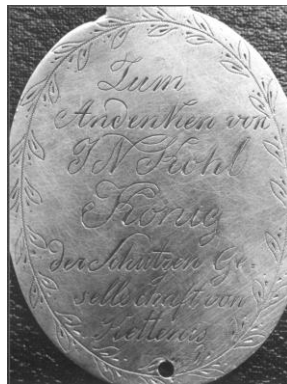 Zum
Andenken von
J N Kohl
König
der Schützen Ge-
sellschaft von
Kettenis